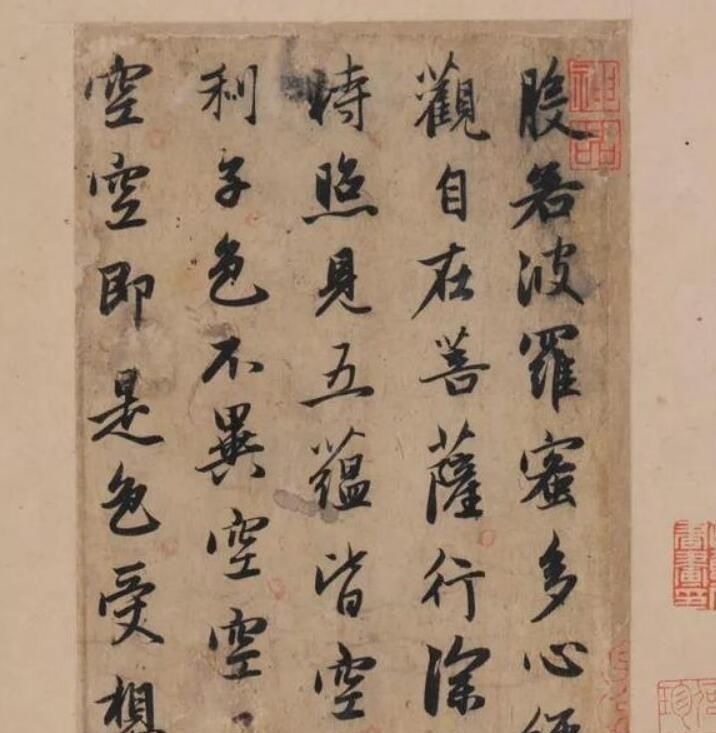 神品
般若波羅蜜多心經
觀自在菩薩行深
時照見五蘊皆空
利子色不異空空
空空即是色受想